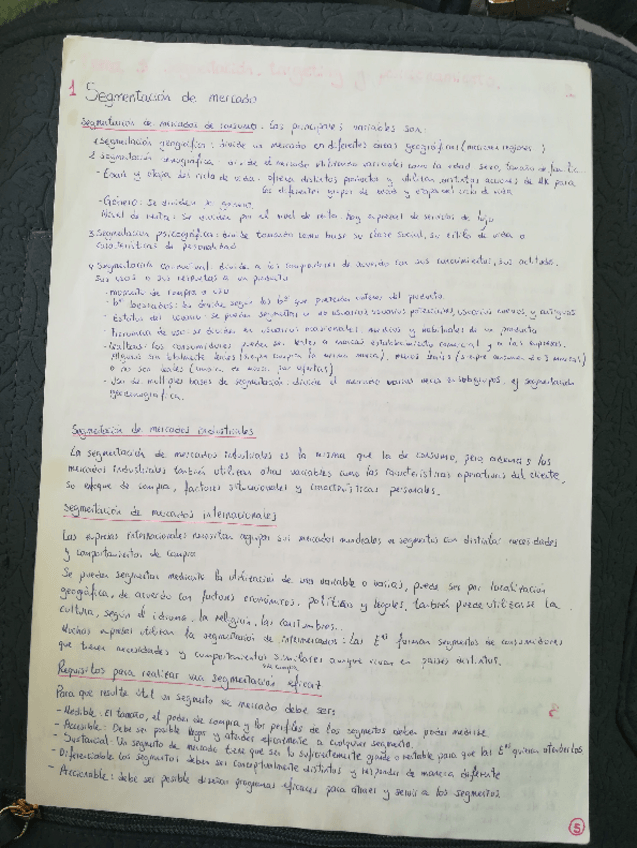 1 Segmentación de mercado
Segmentación de mercados de consumo. Las principales variables son:
1 Segmentación geográfica: divide un mercado en diferentes áreas geográficas (naciones, regiones...)
2 Segmentación demográfica: divide el mercado utilizando variables como la edad, sexo, tamaño de familia...
- Edad y etapa del ciclo de vida: ofrece distintos productos y utilizan distintas acciones de Mk para
los diferentes grupos de edad y etapas del ciclo de vida
- Género: Se dividen por género.
Nivel de renta: Se dividen por el nivel de renta. Hay empresas de servicios de lujo
3 Segmentación psicográfica: divide tomando como base su clase social, su estilo de vida o
características de personalidad
4 Segmentación conductual: divide a los compradores de acuerdo con sus conocimientos, sus actitudes,
sus usos o sus respuestas a un producto
- momento de compra o uso
- bº buscados: Se divide según los bº que pretenden obtener del producto
- Estatus del usuario: se pueden segmentar en no usuarios, usuarios potenciales, usuarios nuevos y antiguos
- Frecuencia de uso: se dividen en usuarios ocasionales, medios y habituales de un producto
- Lealtad: los consumidores pueden ser leales a marcas, establecimiento comercial y a las empresas.
Algunos son totalmente leales (siempre compran la misma marca), menos leales (siempre consumen 2 o 3 marcas)
o no son leales (cambia de marca por ofertas)
- Uso de múltiples bases de segmentación: divide el mercado varias veces en subgrupos, ej segmentación
geodemográfica.
Segmentación de mercados industriales
La segmentación de mercados industriales es la misma que la de consumo, pero además los
mercados industriales también utilizan otras variables como las características operativas del cliente,
su enfoque de compra, factores situacionales y características personales.
Segmentación de mercados internacionales
Las empresas internacionales necesitan agrupar sus mercados mundiales en segmentos con distintas necesidades
y comportamientos de compra
Se pueden segmentar mediante la utilización de una variable o varias, puede ser por localización
geográfica, de acuerdo con factores económicos, políticos y legales, también puede utilizarse la
cultura, según el idioma, la religión, las costumbres...
Muchas empresas utilizan la segmentación de intermercados: Las Eªˢ forman segmentos de consumidores
que tienen necesidades y comportamientos de compra similares aunque vivan en países distintos.
Requisitos para realizar una segmentación eficaz
Para que resulte útil un segmento de mercado debe ser:
- Medible: El tamaño, el poder de compra y los perfiles de los segmentos deben poder medirse
- Accesible: Debe ser posible llegar y atender eficazmente a cualquier segmento.
- Sustancial: Un segmento de mercado tiene que ser lo suficientemente grande o rentable para que las Eªˢ quieran atenderlos
- Diferenciable: Los segmentos deben ser conceptualmente distintos y responder de manera diferente
- Accionable: debe ser posible diseñar programas eficaces para atraer y servir a los segmentos
5